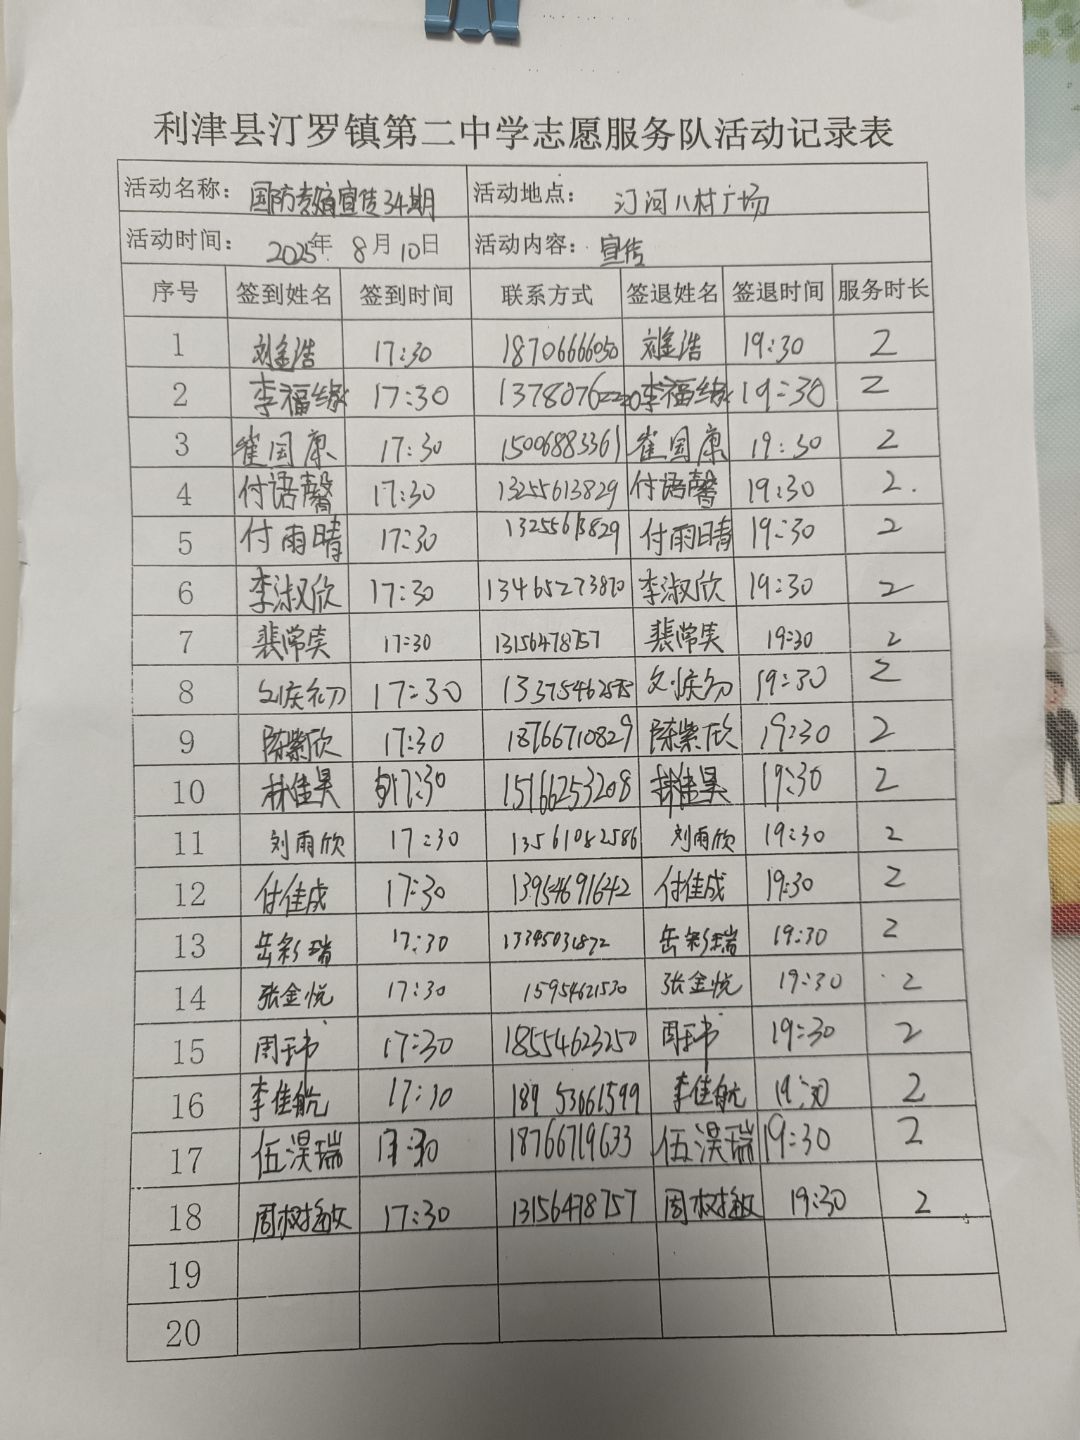 利津县汀罗镇第二中学志愿服务队活动记录表
活动名称: 国防教育宣传34期 活动地点: 汀河八村广场
活动时间: 2025年 8月10日 活动内容: 宣传
序号 签到姓名 签到时间 联系方式 签退姓名 签退时间 服务时长
1 刘金浩 17:30 18706666050 刘金浩 19:30 2
2 李福缘 17:30 13780762220 李福缘 19:30 2
3 崔国康 17:30 15006883361 崔国康 19:30 2
4 付语馨 17:30 13255613829 付语馨 19:30 2.
5 付雨晴 17:30 13255613829 付雨晴 19:30 2
6 李淑欣 17:30 13465273870 李淑欣 19:30 2
7 裴常美 17:30 13156478757 裴常美 19:30 2
8 17:30 19:30 2
9 陈紫欣 17:30 18766710829 陈紫欣 19:30 2
10 林佳昊 17:30 15166253208 林佳昊 19:30 2
11 刘雨欣 17:30 13561082586 刘雨欣 19:30 2
12 付佳成 17:30 13954691642 付佳成 19:30 2
13 岳彩瑞 17:30 17345031872 岳彩瑞 19:30 2
14 张金悦 17:30 15954621530 张金悦 19:30 2
15 周玮 17:30 18554623250 周玮 19:30 2
16 李佳航 17:30 18953661599 李佳航 19:30 2
17 伍淏瑞 17:30 18766719633 伍淏瑞 19:30 2
18 周树敏 17:30 13156478757 周树敏 19:30 2
19
20